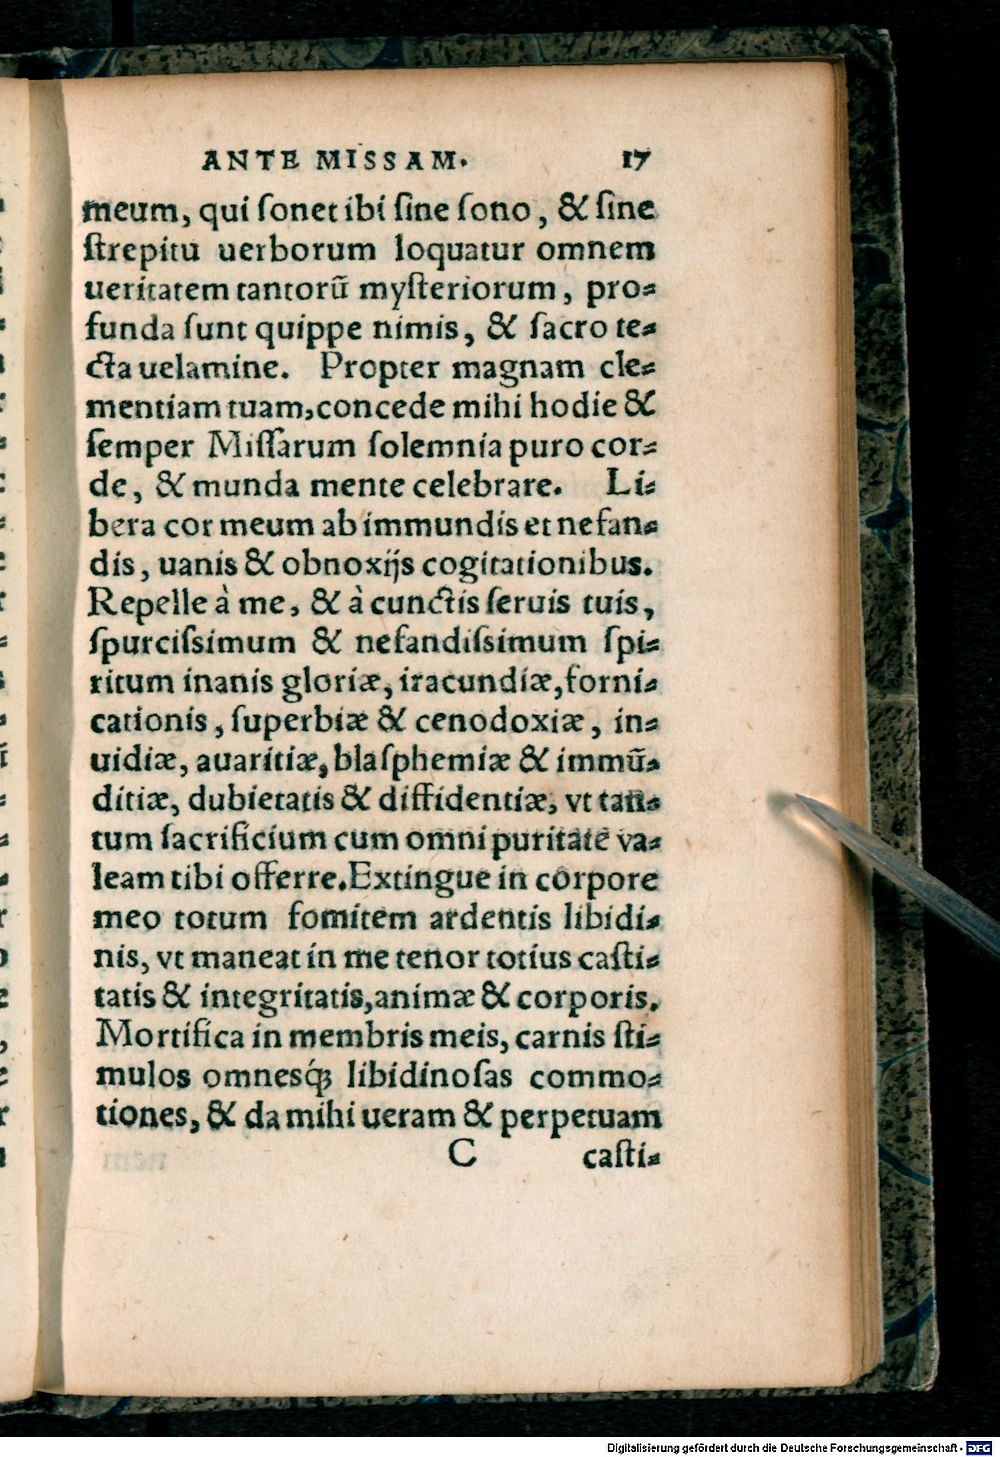 ANTE MISSAM. 17
meum, qui ſonet ibi ſine ſono, & ſine
ſtrepitu uerborum loquatur omnem
ueritatem tantorũ myſteriorum, pro⸗
funda ſunt quippe nimis, & ſacro te⸗
cta uelamine. Propter magnam cle⸗
mentiam tuam, concede mihi hodie &
ſemper Miſſarum ſolemnia puro cor⸗
de, & munda mente celebrare. Li⸗
bera cor meum ab immundis et nefan⸗
dis, uanis & obnoxijs cogitationibus.
Repelle à me, & à cunctis ſeruis tuis,
ſpurciſsimum & nefandiſsimum ſpi⸗
ritum inanis gloriæ, iracundiæ, forni⸗
cationis, ſuperbiæ & cenodoxiæ, in⸗
uidiæ, auaritiæ, blaſphemiæ & immũ⸗
ditiæ, dubietatis & diffidentiæ, vt tan⸗
tum ſacrificium cum omni puritate va⸗
leam tibi offerre. Extingue in corpore
meo totum fomitem ardentis libidi⸗
nis, vt maneat in me tenor totius caſti⸗
tatis & integritatis, animæ & corporis.
Mortifica in membris meis, carnis ſti⸗
mulos omnesq́ꝫ libidinoſas commo⸗
tiones, & da mihi ueram & perpetuam
C caſti⸗
Digitalisierung gefördert durch die Deutsche Forschungsgemeinschaft - DFG